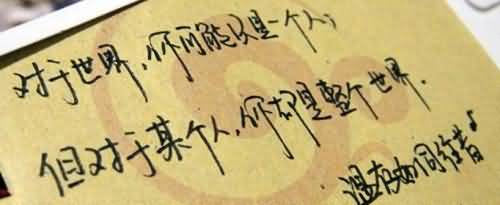 对于世界，你可能只是一个人；
但对于某个人，你却是整个世界．
温存如同往昔